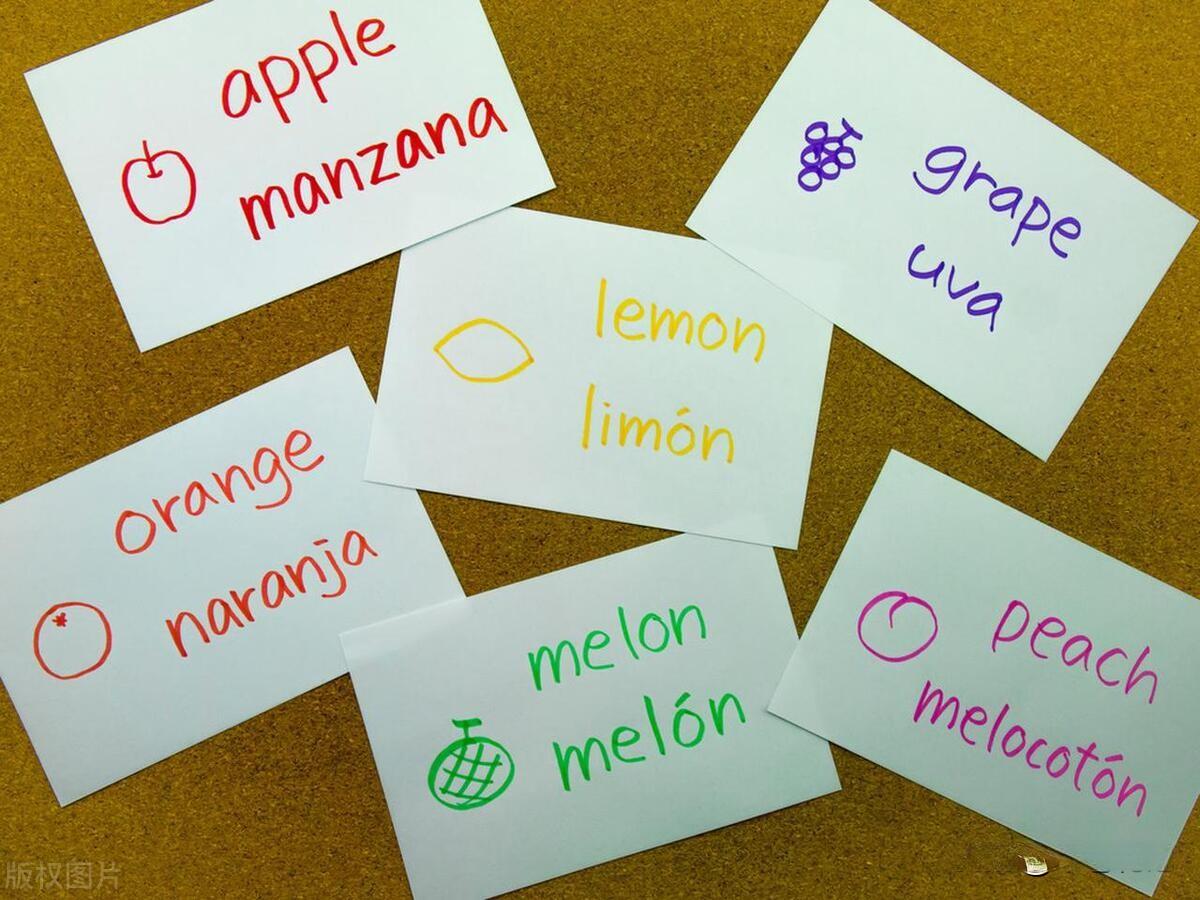 apple
manzana
grape
uva
lemon
limón
orange
naranja
melon
melón
peach
melocotón
版权图片